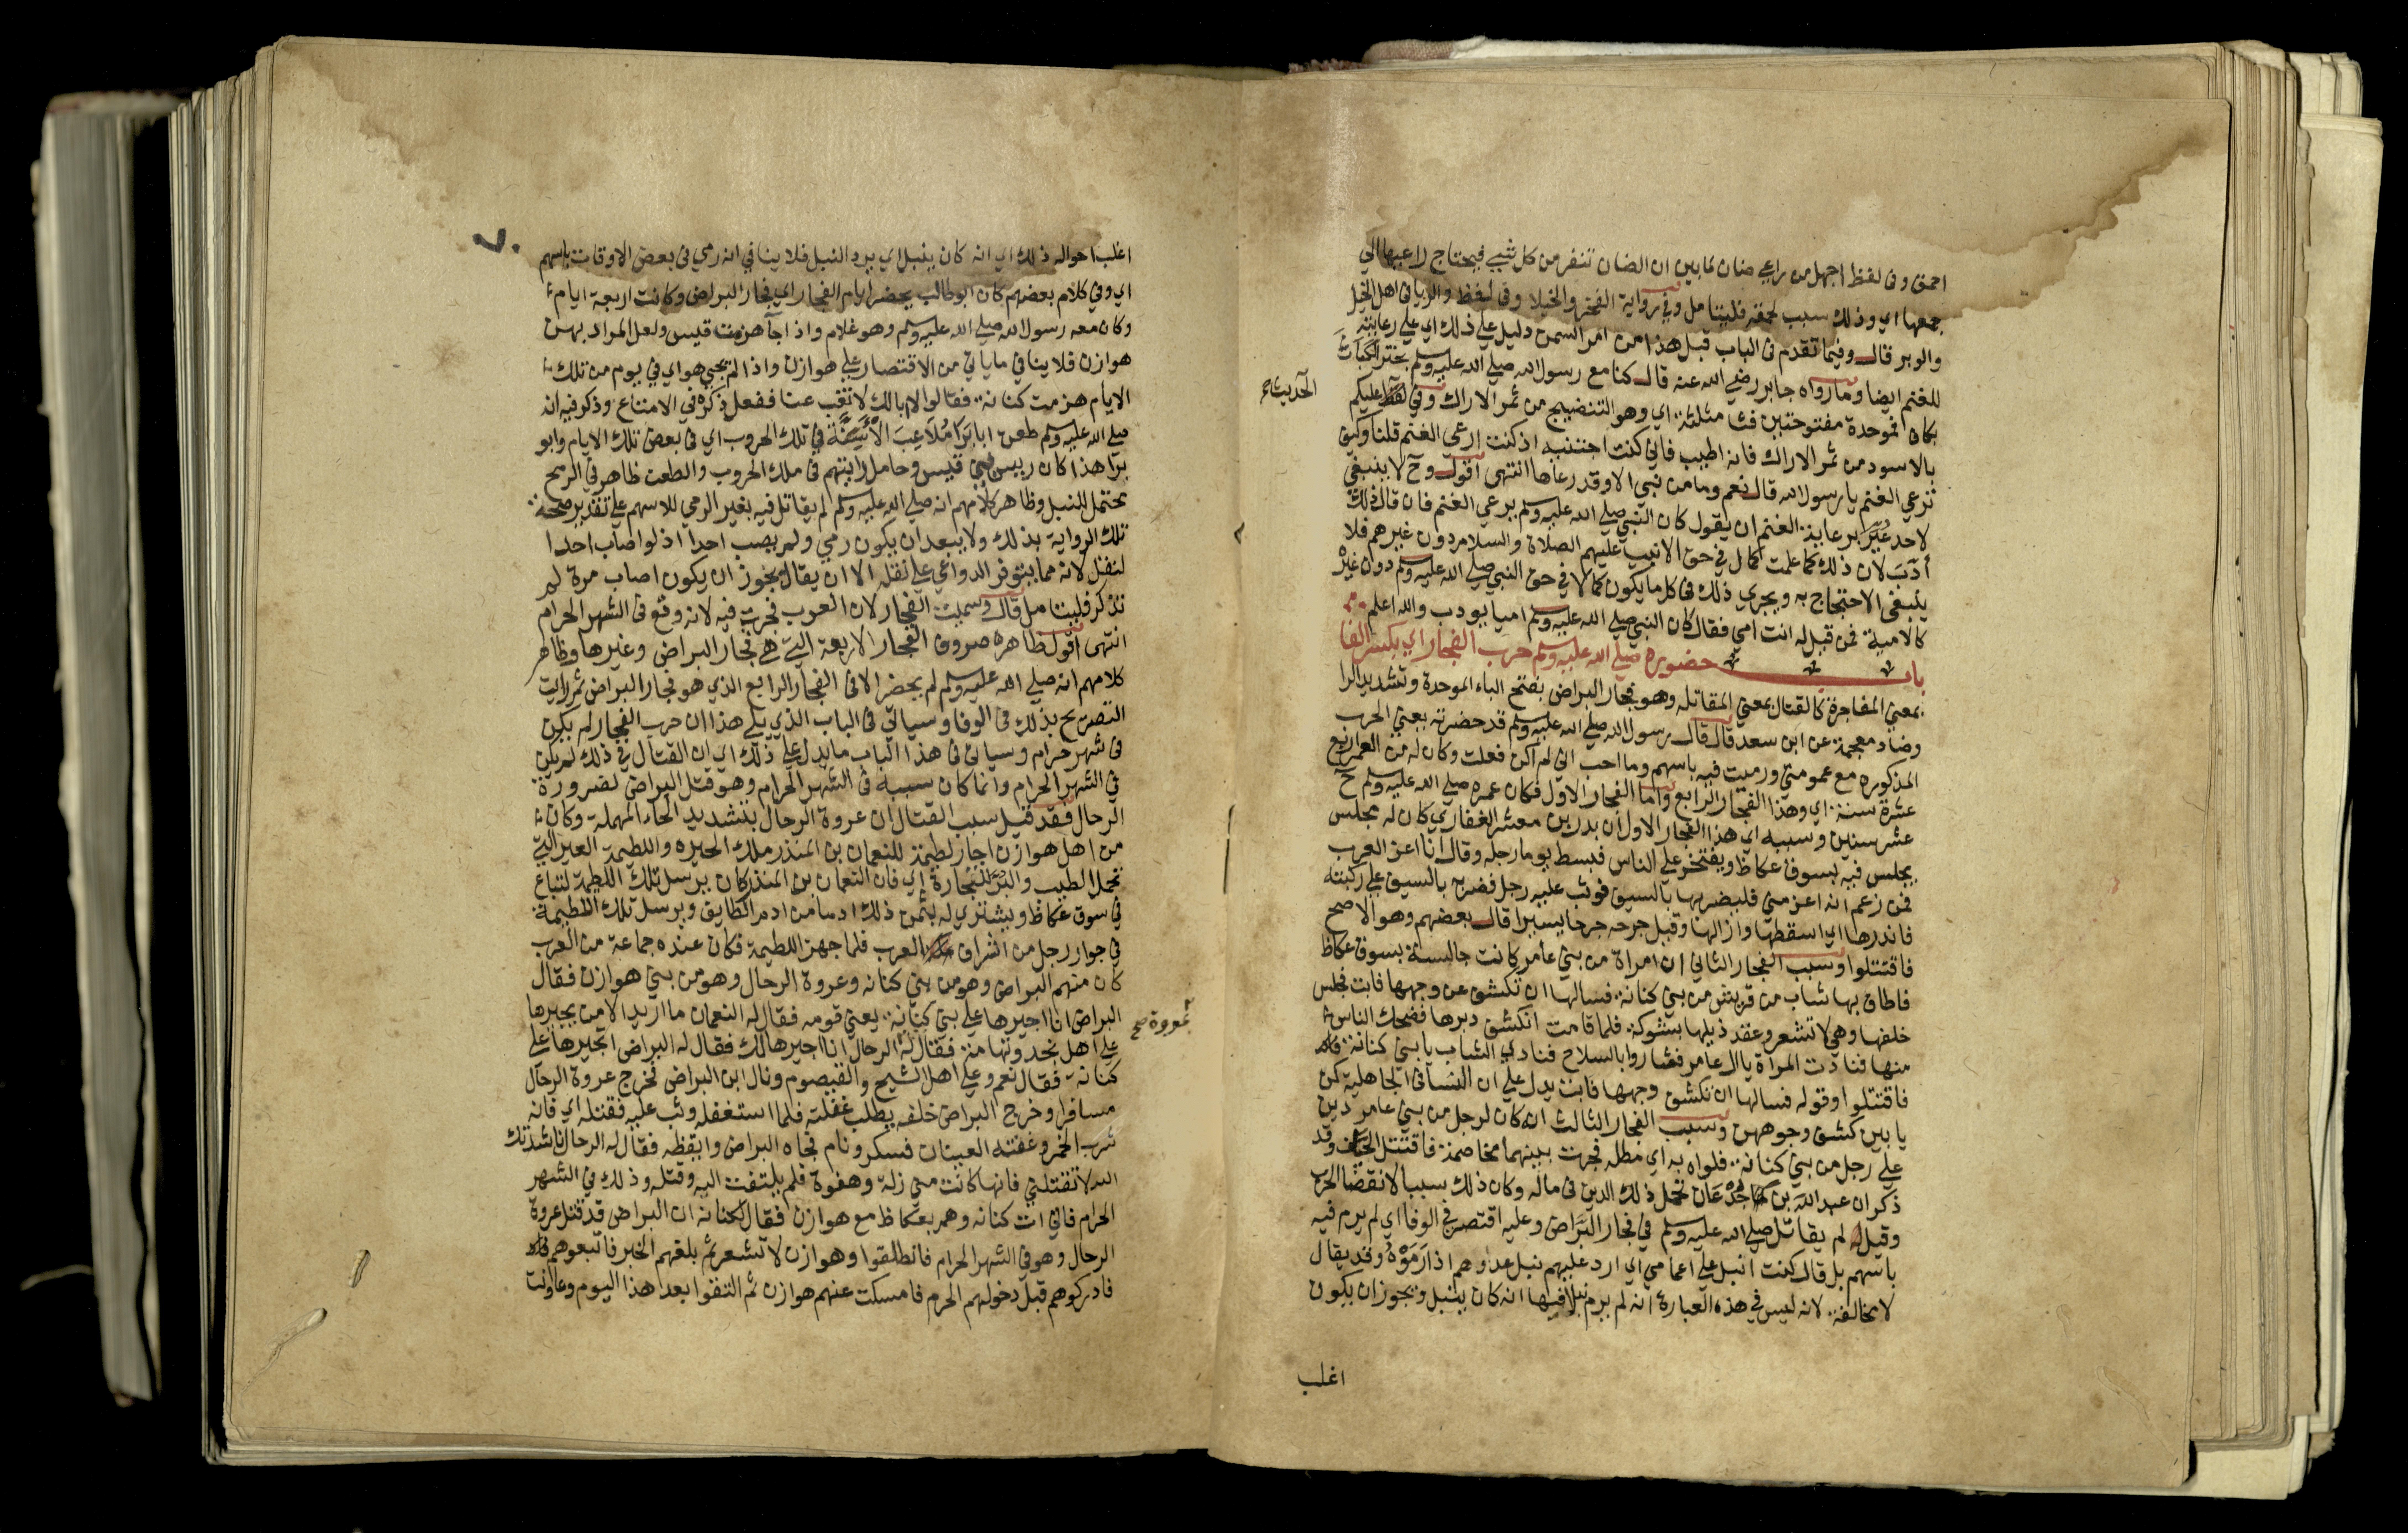 احمق وفى لفظ اجهل من راعي ضان لما بين ان الضان تنفر من كل شيء فيحتاج راعيها الي
جمعها اي وذلك سبب لحمقه فليتامل وفي رواية الفخر والخيلا وفي لفظ والريا في اهل الخيل
والوبر قال وفيما تقدم فى الباب قبل هذا من امر السمن دليل علي ذلك اي علي رعايته
للغنم ايضا وما رواه جابر رضي الله عنه قال كنا مع رسول الله صلي الله عليه وسلم نجتني الكباث
بكاف فموحدة مفتوحتين فثا مثلثة اي وهو النضيج من ثمر الاراك وفي لفظ عليكم
الحديث صح
بالاسود من ثمر الاراك فانه اطيب فاني كنت اجتنيه اذ كنت ارعي الغنم قلنا وكنت
ترعي الغنم يا رسول الله قال نعم وما من نبي الا وقد رعاها انتهى اقول وح لا ينبغي
لاحد عُيّر برعاية الغنم ان يقول كان النبي صلي الله عليه وسلم يرعي الغنم فان قال ذلك
أدّب لان ذلك كما علمت كمال في حق الانبيا عليهم الصلاة والسلام دون غيرهم فلا
ينبغى الاحتجاج به ويجري ذلك فى كل ما يكون كمالا في حق النبي صلي الله عليه وسلم دون غيره
كالامية فمن قيل له انت امي فقال كان النبي صلي الله عليه وسلم اميا يودب والله اعلم
باب حضوره صلي الله عليه وسلم حرب الفجار اي بكسر الفا
بمعني المفاجرة كالقتال بمعني المقاتله وهو فجار البراض بفتح الباء الموحدة وتشديد الرا
وضاد معجمة عن ابن سعد قال قال رسول الله صلي الله عليه وسلم قد حضرته بعني الحرب
المذكوره مع عمومتي ورميت فيه باسهم وما احب اني لم اكن فعلت وكان له من العمر اربع
عشرة سنة اي وهذا الفجار الرابع واما الفجار الاول فكان عمره صلي الله عليه وسلم ح
عشر سنين وسببه اي هذا الفجار الاول ان بدر بن معشر الغفاري كان له مجلس
يجلس فيه بسوق عكاظ ويفتخر علي الناس فبسط يوما رجله وقال انا اعز العرب
فمن زعم انه اعز مني فليضربها بالسيف فوثب عليه رجل فضربه بالسيف علي ركبته
فاندرها اي اسقطها وازالها وقيل جرحه جرحا يسيرا قال بعضهم وهو الاصح
فاقتتلوا وسبب الفجار الثاني ان امراة من بني عامر كانت جالسة بسوق عكاظ
فاطاف بها شاب من قريش من بني كنانة فسالها ان تكشف عن وجهها فابت فجلس
خلفها وهي لا تشعر وعقد ذيلها بشوكة فلما قامت انكشف دبرها فضحك الناس
منها فنادت المراة يال عامر فثاروا بالسلاح فنادي الشاب يا بني كنانة
فاقتتلوا وقوله فسالها ان تكشف وجهها فابت يدل علي ان النسا في الجاهلية كن
يابين كشف وجوههن وسبب الفجار الثالث انه كان لرجل من بني عامر دين
علي رجل من بني كنانة فلواه به اي مطله فجرت بينهما مخاصمة فاقتتل الحيان وقد
ذكر ان عبد الله بن جُدْعَان تحمل ذلك الدين فى ماله وكان ذلك سببا لانقضا الحرب
وقيل لم يقاتل صلي الله عليه وسلم في فجار البَرَّاض وعليه اقتصر في الوفا اي لم يرم فيه
باسهم بل قال كنت انبل علي اعمامي اي ارد عليهم نبل عدوهم اذا رَمَوْهُ وقد يقال
لا مخالفة لانه ليس في هذه العبارة انه لم يرم نبلا فيها انه كان ينبل ويجوز ان يكون
اغلب
٧٠
اغلب احواله ذلك اي انه كان ينبل اي يرد النبل فلا ينافي انه رمي فى بعض الاوقات باسهم
اي وفي كلام بعضهم كان ابو طالب يحضر ايام الفجار اي فجار البراض وكانت اربعة ايام
وكان معه رسول الله صلي الله عليه وسلم وهو غلام واذا جآ هزمت قيس ولعل المراد بهن
هوازن فلا ينافي ما ياتي من الاقتصار علي هوازن واذا لم يجي هو اي في يوم من تلك
الايام هزمت كنانة فقالوا لا ابا لك لا تغب عنا ففعل ذكره في الامتاع وذكر فيه انه
صلي الله عليه وسلم طعن ابا بَرَا مُلاَعِبَ الأَسِنَّة في تلك الحروب اي في بعض تلك الايام وابو
برّا هذا كان رييس بني قيس وحامل رايتهم فى تلك الحروب والطعن ظاهر في الرمح
محتمل للنبل وظاهر كلامهم انه صلي الله عليه وسلم لم يقاتل فيه بغير الرمي للاسهم علي تقدير صحة
تلك الرواية بذلك ولا يبعد ان يكون رمي ولم يصب احدا اذ لو اصاب احدا
لنقل لانه مما يتوفر الدواعي علي نقله الا ان يقال يجوز ان يكون اصاب مرة لم
تذكر فليتامل قال وسميت الفجار لان العرب فجرت فيه لانه وقع فى الشهر الحرام
انتهى اقول ظاهره صروف الفجار الاربعة التي هي فجار البراض وغيرها وظاهر
كلامهم انه صلي الله عليه وسلم لم يحضر الا فى الفجار الرابع الذي هو فجار البراض ثم رايت
التصريح بذلك فى الوفا وسياتي فى الباب الذي يلي هذا ان حرب الفجار لم يكن
فى شهر حرام وسياتى فى هذا الباب ما يدل علي ذلك اي ان القتال في ذلك لم يكن
في الشهر الحرام وانما كان سببه فى الشهر الحرام وهو قتل البراض لضرورة
الرحال فقد قيل سبب القتال ان عروة الرحال بتشديد الحاء المهملة وكان
من اهل هوازن اجاز لطيمة للنعمان بن المنذر ملك الحيره واللطيمة العير التي
تحمل الطيب والبز للتجارة اي فان النعمان بن المنذر كان يرسل تلك اللطيمة لتباع
في سوق عكاظ ويشتري له بثمن ذلك ادما من ادم الطايف ويرسل تلك اللطيمة
في جوار رجل من اشراف العرب فلما جهز اللطيمة فكان عنده جماعة من العرب
كان منهم البراض وهو من بني كنانه وعروة الرحال وهو من بني هوازن فقال
البراض انا اجيرها علي بني كنانة يعني قومه فقال له النعمان ما اريد الا من يجيرها
علي اهل نجد وتهامة فقال له الرحال انا اجيرها لك فقال له البراض اتجيرها علي
عروة صح
كنانة فقال نعم وعلي اهل الشيح والقيصوم ونال ابن البراض فخرج عروة الرحال
مسافرا وخرج البراض خلفه يطلب غفلته فلما استغفله وثب عليه فقتله اي فانه
شرب الخمر وغنته القينان فسكر ونام فجاه البراض وايقظه فقال له الرحال ناشدتك
الله لا تقتلني فانها كانت مني زلة وهفوة فلم يلتفت اليه وقتله وذلك في الشهر
الحرام فاتى ات كنانه وهم بعكاظ مع هوازن فقال لكنانة ان البراض قد قتل عروة
الرحال وهو في الشهر الحرام فانطلقوا وهوازن لا تشعر ثم بلغهم الخبر فاتبعوهم
فادركوهم قبل دخولهم الحرم فامسكت عنهم هوازن ثم التقوا بعد هذا اليوم وعاونت